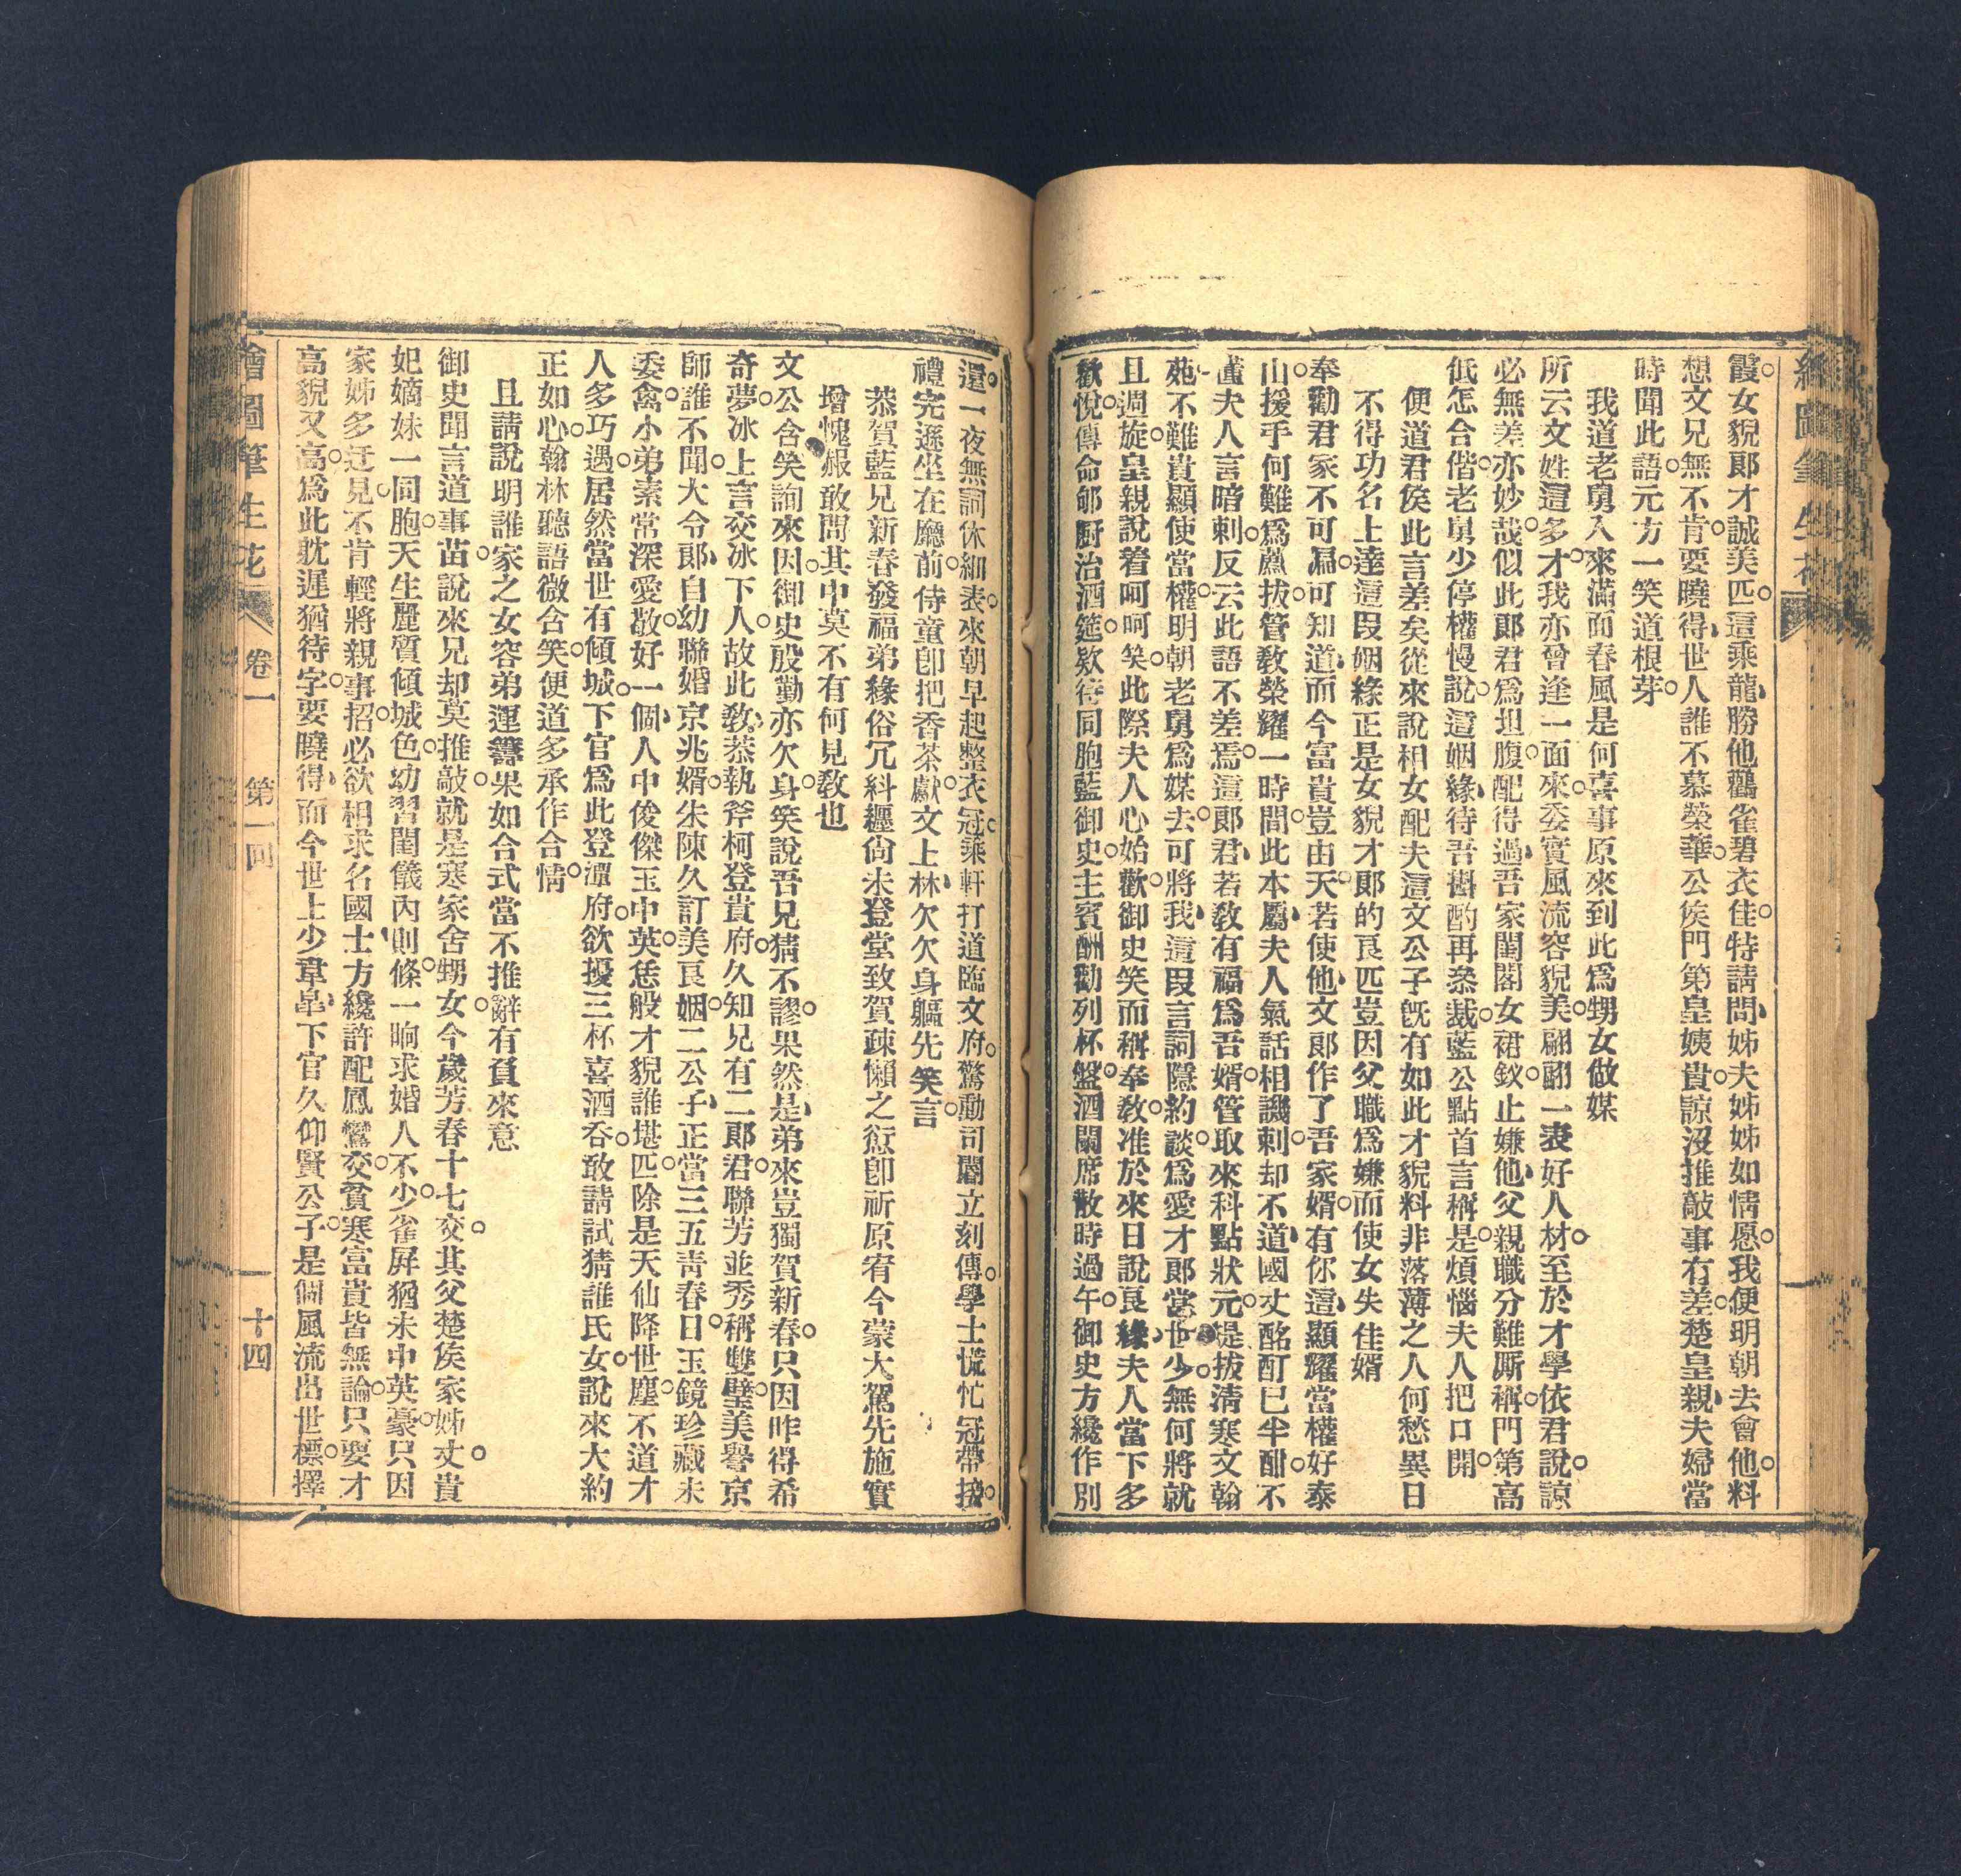 繪圖筆生花
霞女貌郎才誠美匹這乘龍勝他鸛雀碧衣佳特請問姊夫姊姊如情愿我便明朝去會他料
想文兄無不肯要曉得世人誰不慕榮華公侯門第皇姨貴諒沒推敲事有差楚皇親夫婦當
時聞此語元方一笑道根芽
我道老舅入來滿面春風是何喜事原來到此爲甥女做媒
所云文姓這多才我亦曾逢一面來委實風流容貌美翩翩一表好人材至於才學依君說諒
必無差亦妙哉似此郎君爲坦腹配得過吾家閨閣女裙釵止嫌他父親職分難厮稱門第高
低怎合偕老舅少停權慢說這姻緣待吾斟酌再叅裁藍公點首言稱是煩惱夫人把口開
便道君侯此言差矣從來說相女配夫這文公子旣有如此才貌料非落薄之人何愁異日
不得功名上達這叚姻緣正是女貌才郎的良匹豈因父職爲嫌而使女失佳婿
奉勸君家不可漏可知道而今富貴豈由天若使他文郎作了吾家婿有你這顯耀當權好泰
山援手何難爲薦拔管敎榮耀一時間此本屬夫人氣話相譏刺却不道國丈酩酊已半酣不
董夫人言暗刺反云此語不差焉這郎君若敎有福爲吾婿管取來科點狀元提拔清寒文翰
苑不難貴顯使當權明朝老舅爲媒去可將我這叚言詞隱約談爲愛才郎當世少無何將就
且週旋皇親說着呵呵笑此際夫人心始歡御史笑而稱奉敎准於來日說良緣夫人當下多
歡悅傳命郇厨治酒筵欵待同胞藍御史主賓酬勸列杯盤酒闌席散時過午御史方纔作別
還一夜無詞休細表來朝早起整衣冠乘軒打道臨文府驚動司閽立刻傳學士慌忙冠帶接
禮完遜坐在廳前侍童卽把香茶獻文上林欠欠身軀先笑言
恭賀藍兄新春發福弟緣俗冗糾纒尙未登堂致賀疎懶之愆卽祈原宥今蒙大駕先施實
增愧赧敢問其中莫不有何見敎也
文公含笑詢來因御史殷勤亦欠身笑說吾兄猜不謬果然是弟來豈獨賀新春只因昨得希
奇夢冰上言交冰下人故此敎恭執斧柯登貴府久知兄有二郎君聯芳並秀稱雙璧美譽京
師誰不聞大令郎自幼聯婚京兆婿朱陳久訂美良姻二公子正當三五靑春日玉鏡珍藏未
委禽小弟素常深愛敬好一個人中俊傑玉中英恁般才貌誰堪匹除是天仙降世塵不道才
人多巧遇居然當世有傾城下官爲此登潭府欲擾三杯喜酒吞敢請試猜誰氏女說來大約
正如心翰林聽語微含笑便道多承作合情
且請說明誰家之女容弟運籌果如合式當不推辭有負來意
御史聞言道事苗說來兄却莫推敲就是寒家舍甥女今歲芳春十七交其父楚侯家姊丈貴
妃嫡妹一同胞天生麗質傾城色幼習閨儀內則條一晌求婚人不少雀屛猶未中英豪只因
家姊多迂見不肯輕將親事招必欲相求名國士方纔許配鳳鸞交貧寒富貴皆無論只要才
高貌又高爲此躭遲猶待字要曉得而今世上少韋臯下官久仰賢公子是個風流出世標擇
繪圖筆生花 卷一 第一回 十四